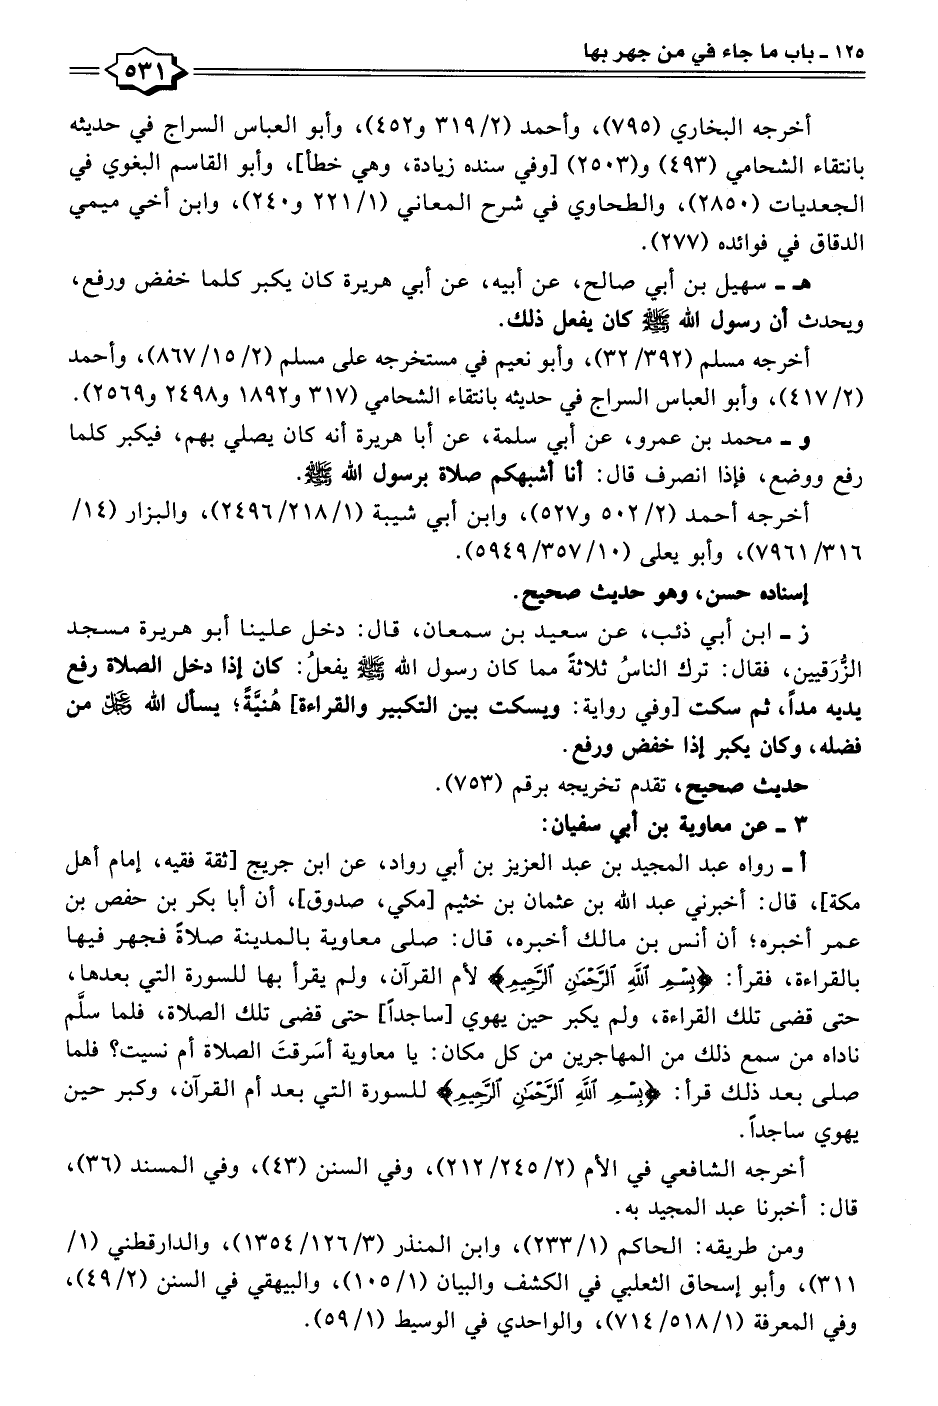 ١٢٥ ـ باب ما جاء في من جهر بها
٥٣١
أخرجه البخاري (٧٩٥)، وأحمد (٣١٩/٢ و٤٥٢)، وأبو العباس السراج في حديثه
بانتقاء الشحامي (٤٩٣) و(٢٥٠٣) [وفي سنده زيادة، وهي خطأ]، وأبو القاسم البغوي في
الجعديات (٢٨٥٠)، والطحاوي في شرح المعاني (٢٢١/١ و٢٤٠)، وابن أخي ميمي
الدقاق في فوائده (٢٧٧).
هـ ـ سهيل بن أبي صالح، عن أبيه، عن أبي هريرة كان يكبر كلما خفض ورفع،
ويحدث أن رسول الله ﷺ كان يفعل ذلك.
أخرجه مسلم (٣٢/٣٩٢)، وأبو نعيم في مستخرجه على مسلم (٨٦٧/١٥/٢)، وأحمد
(٤١٧/٢)، وأبو العباس السراج في حديثه بانتقاء الشحامي (٣١٧ و١٨٩٢ و٢٤٩٨ و٢٥٦٩).
و ـ محمد بن عمرو، عن أبي سلمة، عن أبا هريرة أنه كان يصلي بهم، فيكبر كلما
رفع ووضع، فإذا انصرف قال: أنا أشبهكم صلاة برسول الله ﷺ.
أخرجه أحمد (٥٠٢/٢ و٥٢٧)، وابن أبي شيبة (٢٤٩٦/٢١٨/١)، والبزار (١٤/
٧٩٦١/٣١٦)، وأبو يعلى (٥٩٤٩/٣٥٧/١٠).
إسناده حسن، وهو حديث صحيح.
ز ـ ابن أبي ذئب، عن سعيد بن سمعان، قال: دخل علينا أبو هريرة مسجد
الزُّرَقيين، فقال: ترك الناسُ ثلاثةً مما كان رسول الله ﷺ يفعلُ: كان إذا دخل الصلاة رفع
يديه مداً، ثم سكت [وفي رواية: ويسكت بين التكبير والقراءة] هُنيَّةً؛ يسأل الله ﷻ من
فضله، وكان يكبر إذا خفض ورفع.
حديث صحيح، تقدم تخريجه برقم (٧٥٣).
٣ ـ عن معاوية بن أبي سفيان:
أ ـ رواه عبد المجيد بن عبد العزيز بن أبي رواد، عن ابن جريج [ثقة فقيه، إمام أهل
مكة]، قال: أخبرني عبد الله بن عثمان بن خثيم [مكي، صدوق]، أن أبا بكر بن حفص بن
عمر أخبره؛ أن أنس بن مالك أخبره، قال: صلى معاوية بالمدينة صلاةً فجهر فيها
بالقراءة، فقرأ: ﴿بِسْمِ ٱللَّهِ ٱلرَّحْمَٰنِ ٱلرَّحِيمِ﴾ لأم القرآن، ولم يقرأ بها للسورة التي بعدها،
حتى قضى تلك القراءة، ولم يكبر حين يهوي [ساجداً] حتى قضى تلك الصلاة، فلما سلَّم
ناداه من سمع ذلك من المهاجرين من كل مكان: يا معاوية أسَرقتَ الصلاة أم نسيت؟ فلما
صلى بعد ذلك قرأ: ﴿بِسْمِ ٱللَّهِ ٱلرَّحْمَٰنِ ٱلرَّحِيمِ﴾ للسورة التي بعد أم القرآن، وكبر حين
يهوي ساجداً.
أخرجه الشافعي في الأم (٢١٢/٢٤٥/٢)، وفي السنن (٤٣)، وفي المسند (٣٦)،
قال: أخبرنا عبد المجيد به.
ومن طريقه: الحاكم (٢٣٣/١)، وابن المنذر (١٣٥٤/١٢٦/٣)، والدارقطني (١/
٣١١)، وأبو إسحاق الثعلبي في الكشف والبيان (١٠٥/١)، والبيهقي في السنن (٤٩/٢)،
وفي المعرفة (٧١٤/٥١٨/١)، والواحدي في الوسيط (٥٩/١).